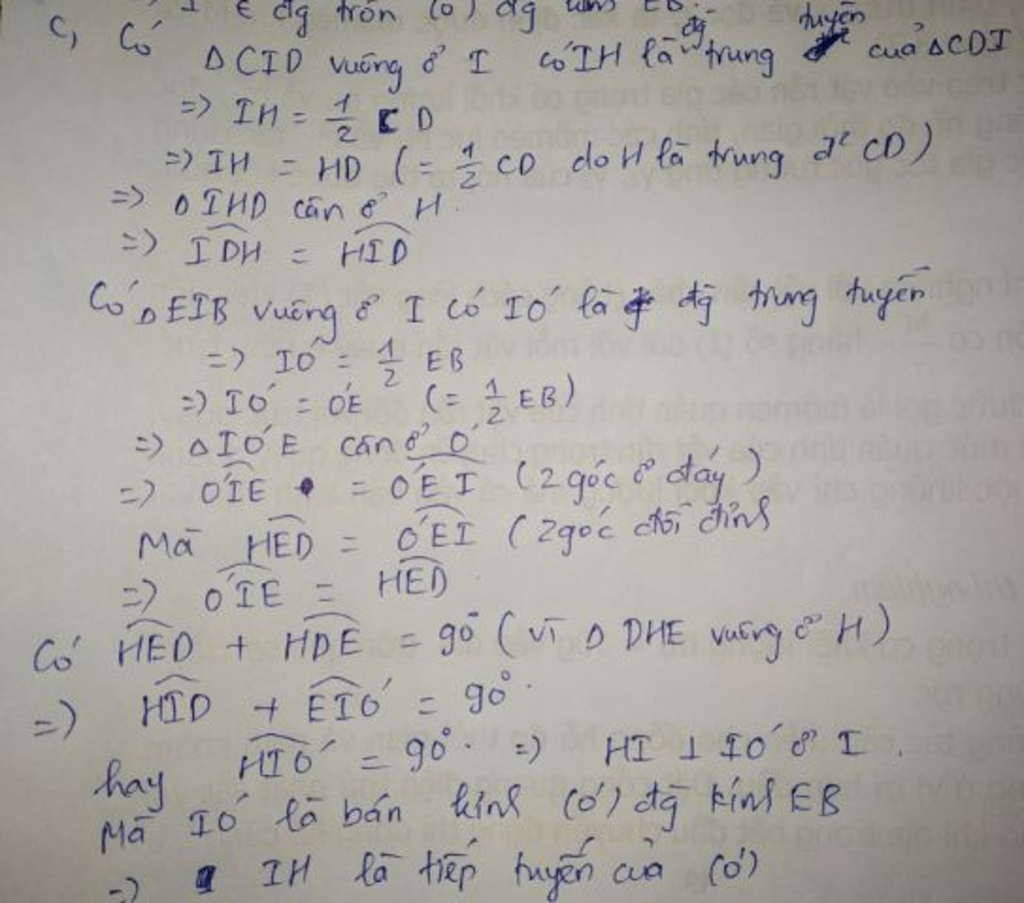 I ∈ đg tròn (O') đg kính EB.
c, Có
ΔCID vuông ở I có IH là đg trung tuyến của ΔCDI
=> IH = 1/2 CD
=> IH = HD (= 1/2 CD do H là trung đ² CD)
=> ΔIHD cân ở H.
=> \widehat{IDH} = \widehat{HID}
Có ΔEIB vuông ở I có IO' là đg trung tuyến
=> IO' = 1/2 EB
=> IO' = O'E (= 1/2 EB)
=> ΔIO'E cân ở O'
=> \widehat{O'IE} = \widehat{O'EI} (2 góc ở đáy)
Mà \widehat{HED} = \widehat{O'EI} (2 góc đối đỉnh
=> \widehat{O'IE} = \widehat{HED}
Có \widehat{HED} + \widehat{HDE} = 90° (vì Δ DHE vuông ở H)
=> \widehat{HID} + \widehat{EIO'} = 90°.
hay \widehat{HIO'} = 90°. => HI ⊥ IO' ở I.
Mà IO' là bán kính (O') đg kính EB
=> IH là tiếp tuyến của (O')